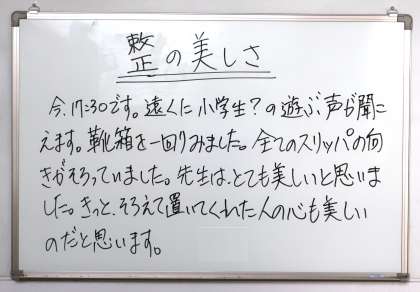 整の美しさ
今、17:30です。遠くに小学生?の遊ぶ声が聞こ
えます。靴箱を一回りみました。全てのスリッパの向
きがそろっていました。先生は、とても美しいと思いま
した。きっと、そろえて置いてくれた人の心も美しい
のだと思います。